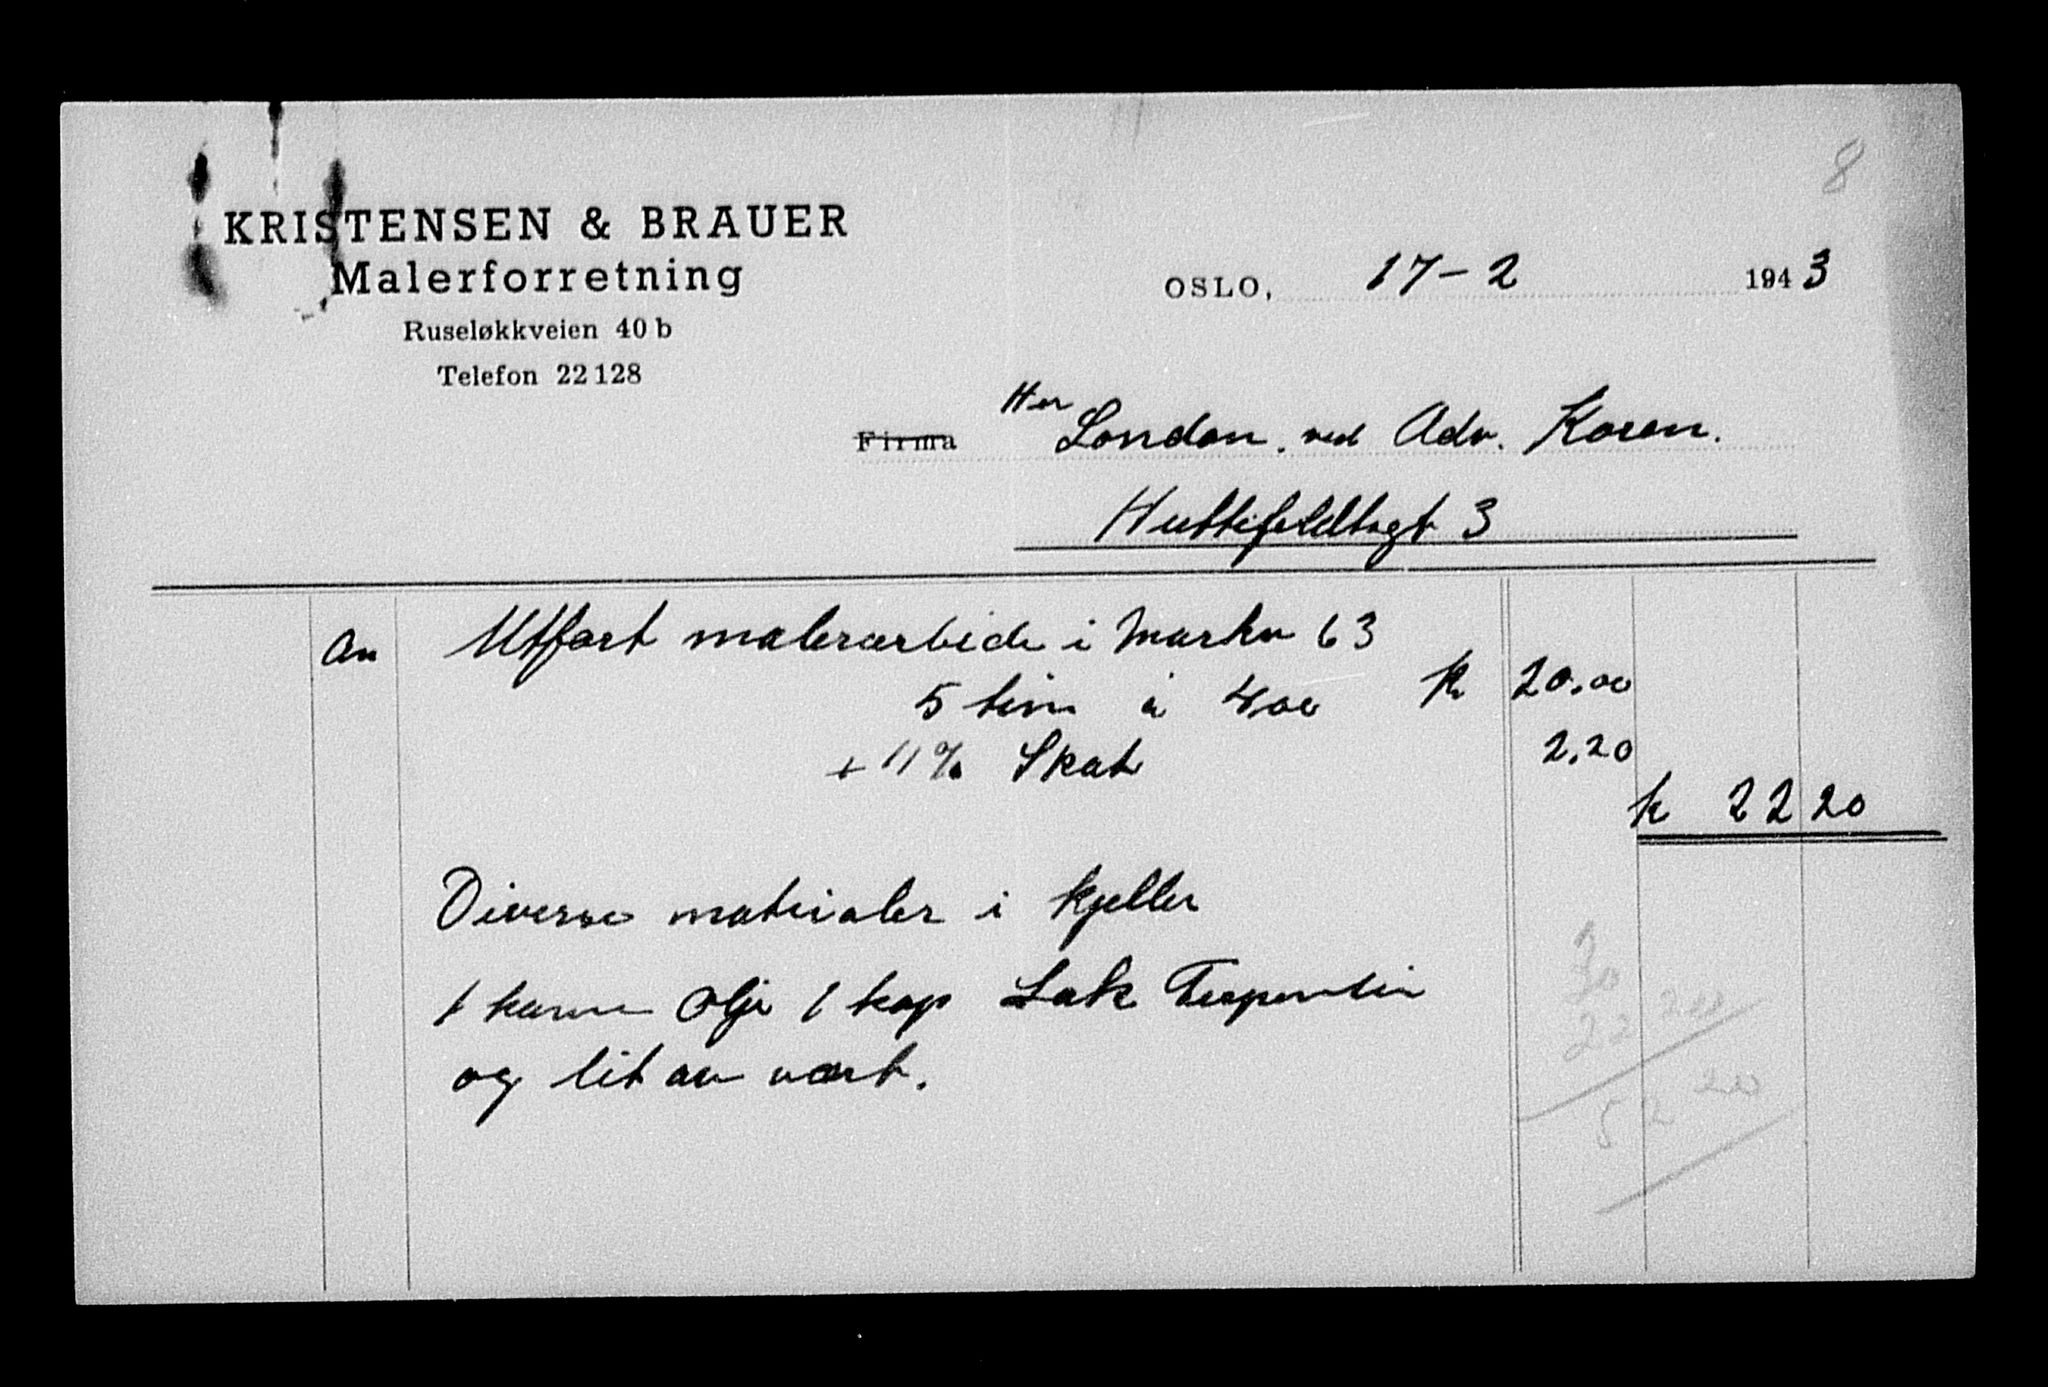 8
KRISTENSEN & BRAUER
Malerforretning
Ruseløkkveien 40 b
Telefon 22128
OSLO, 17-2 1943
Firma Her London. ved Adv. Koren.
Huitfeldtsgt 3
An Utført malerarbide i Markv 63
5 tim à 4,00 kr 20.00
+ 11% Skat 2.20
kr 22 20
Diverse materialer i kjeller
1 kanne olje 1 kop Lak Terpentin
og lit av vært.
30
22 20
52 20